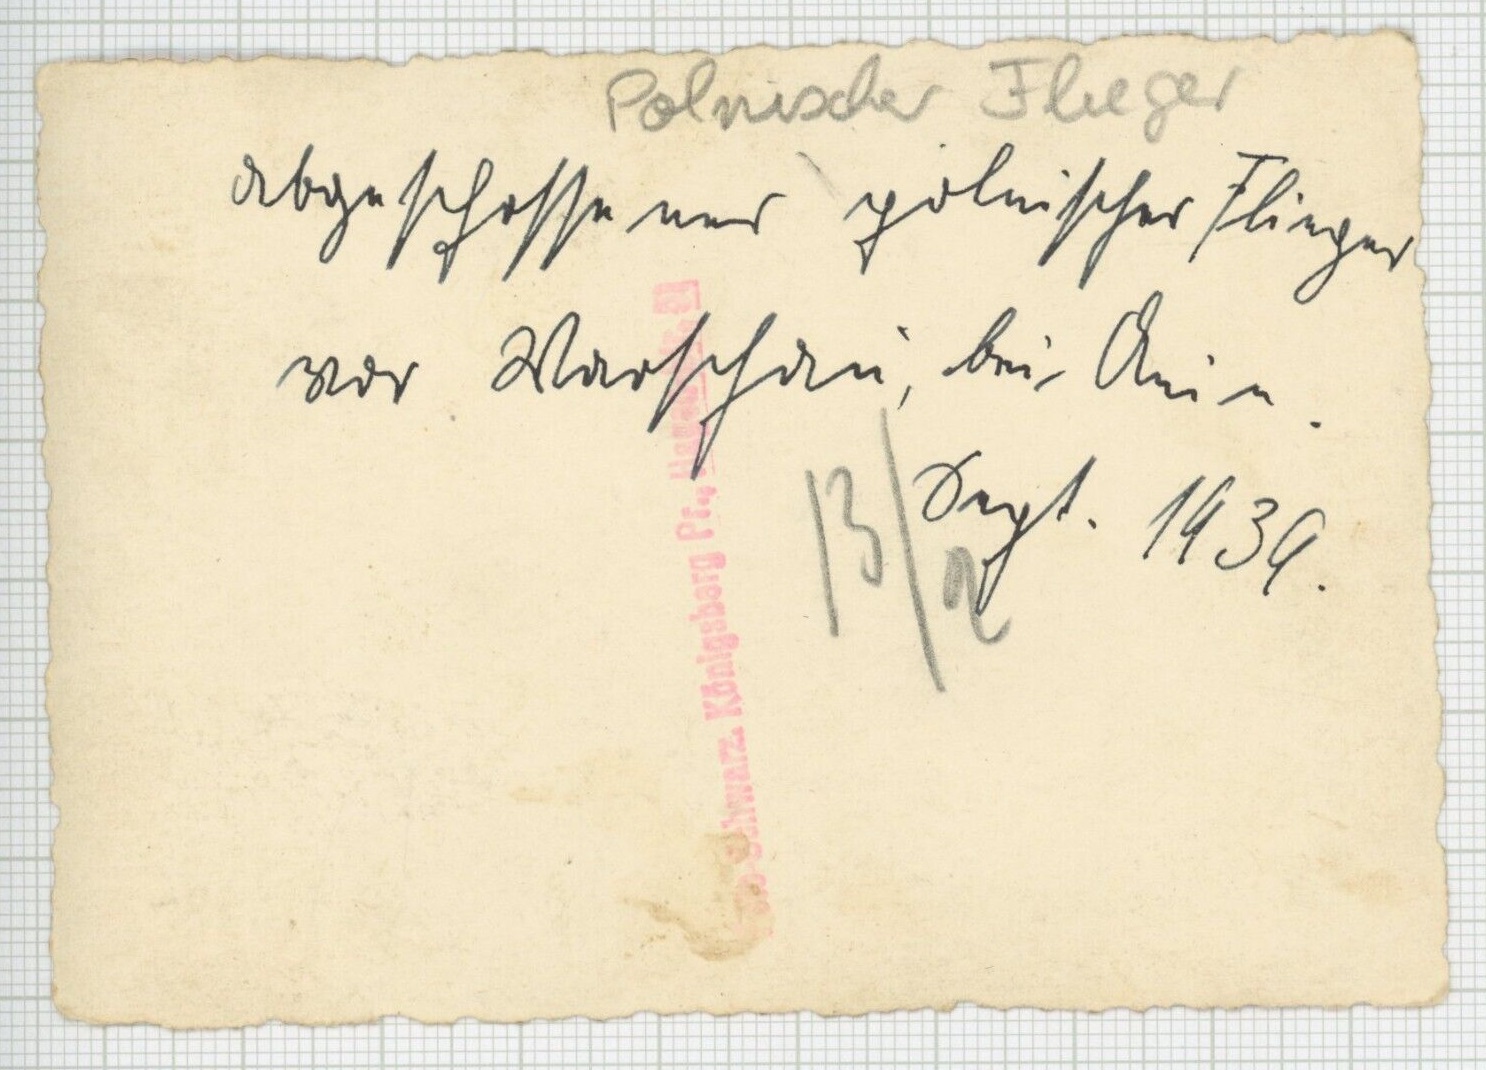 Polnischer Flieger
abgeschossener polnischer Flieger
vor Warschau, bei
Sept. 1939.
13/2
Foto-Schwarz. Königsberg Pr.,